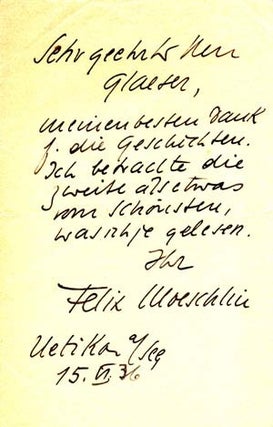 Sehr geehrter Herr
Glaeser,
meinen besten Dank
f. die Geschichten.
Ich betrachte die
zweite als etwas
vom Schönsten,
was ich je gelesen.
Ihr
Felix Moeschlin
Uetikon a/See
15. VI. 36